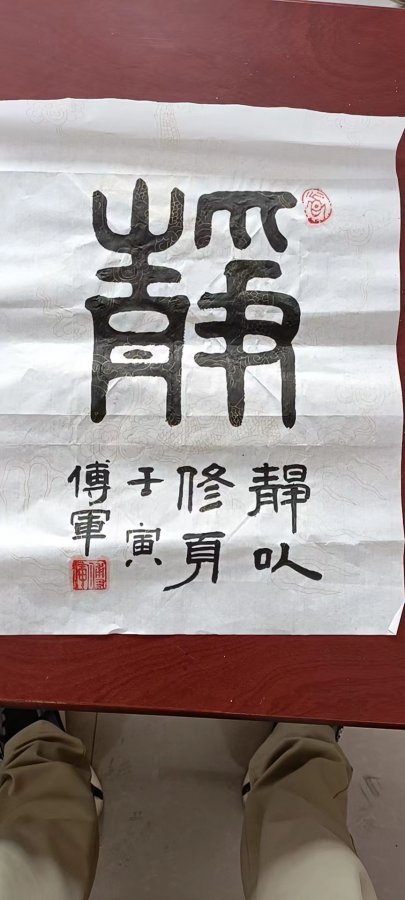 靜
靜以
修身
壬寅
傅軍